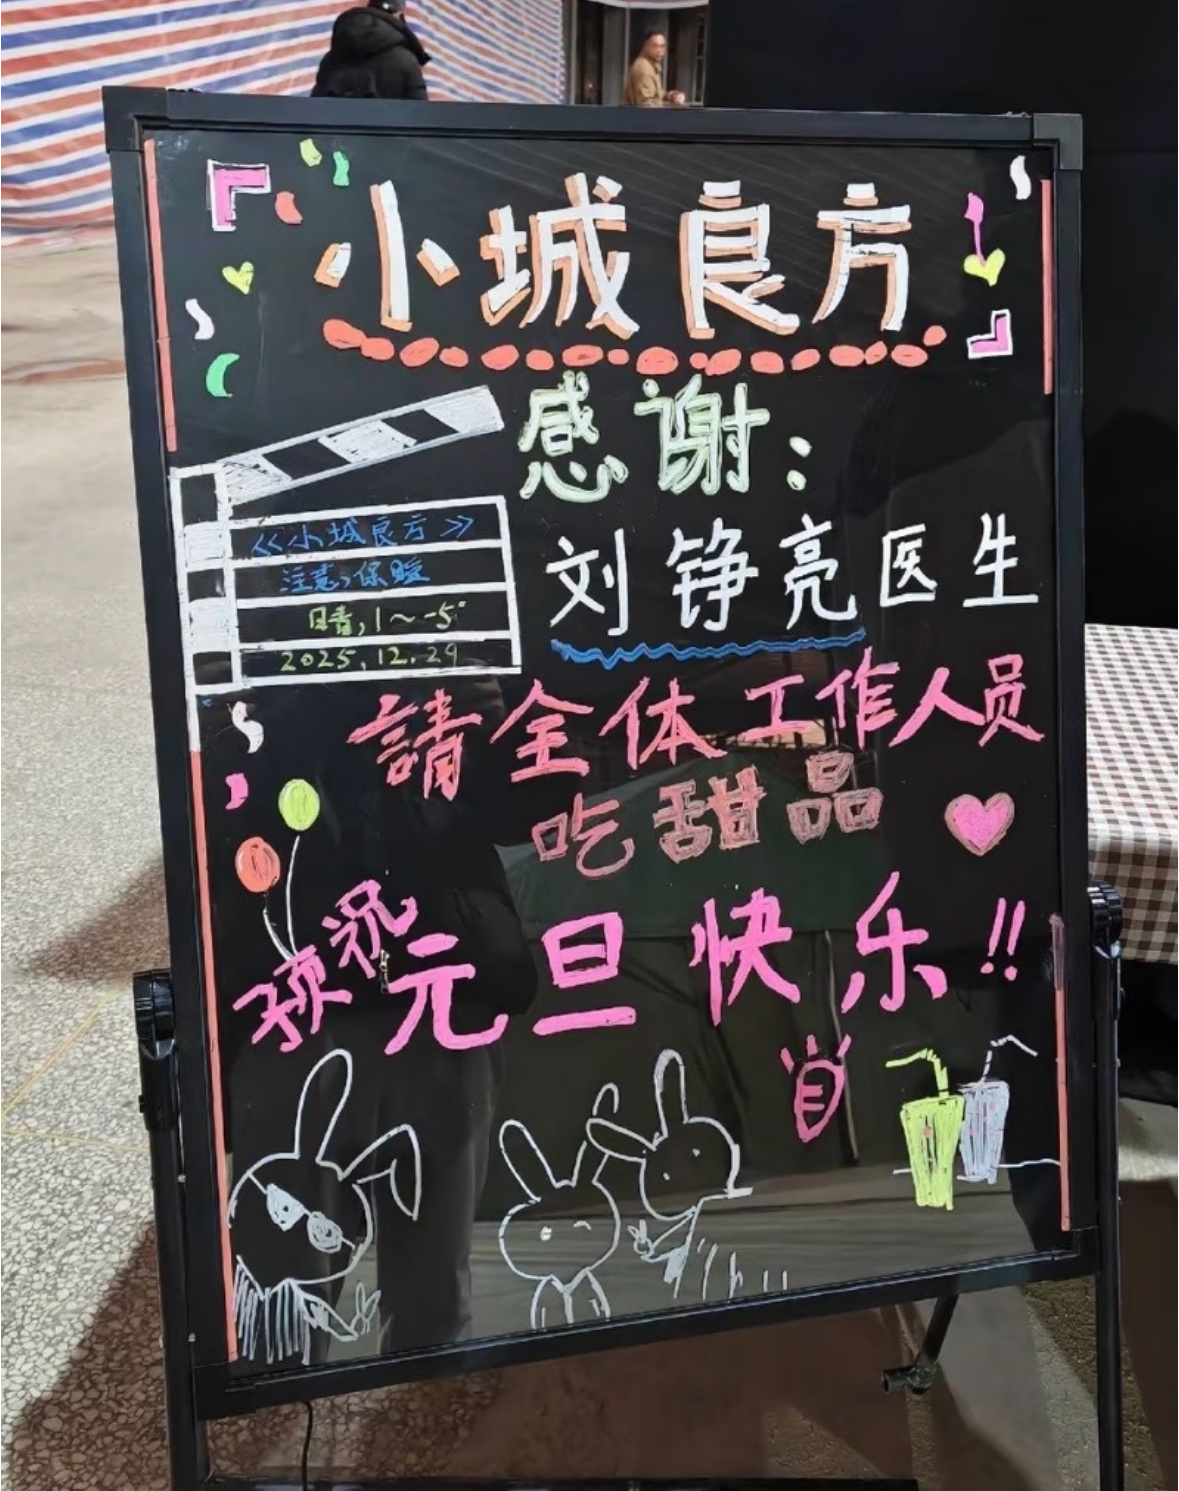 小城良方
感谢:
《小城良方》
注意,保暖
日青,1~-5°
2025.12.29
刘铮亮医生
請全体工作人员
吃甜品
预祝
元旦快乐!!